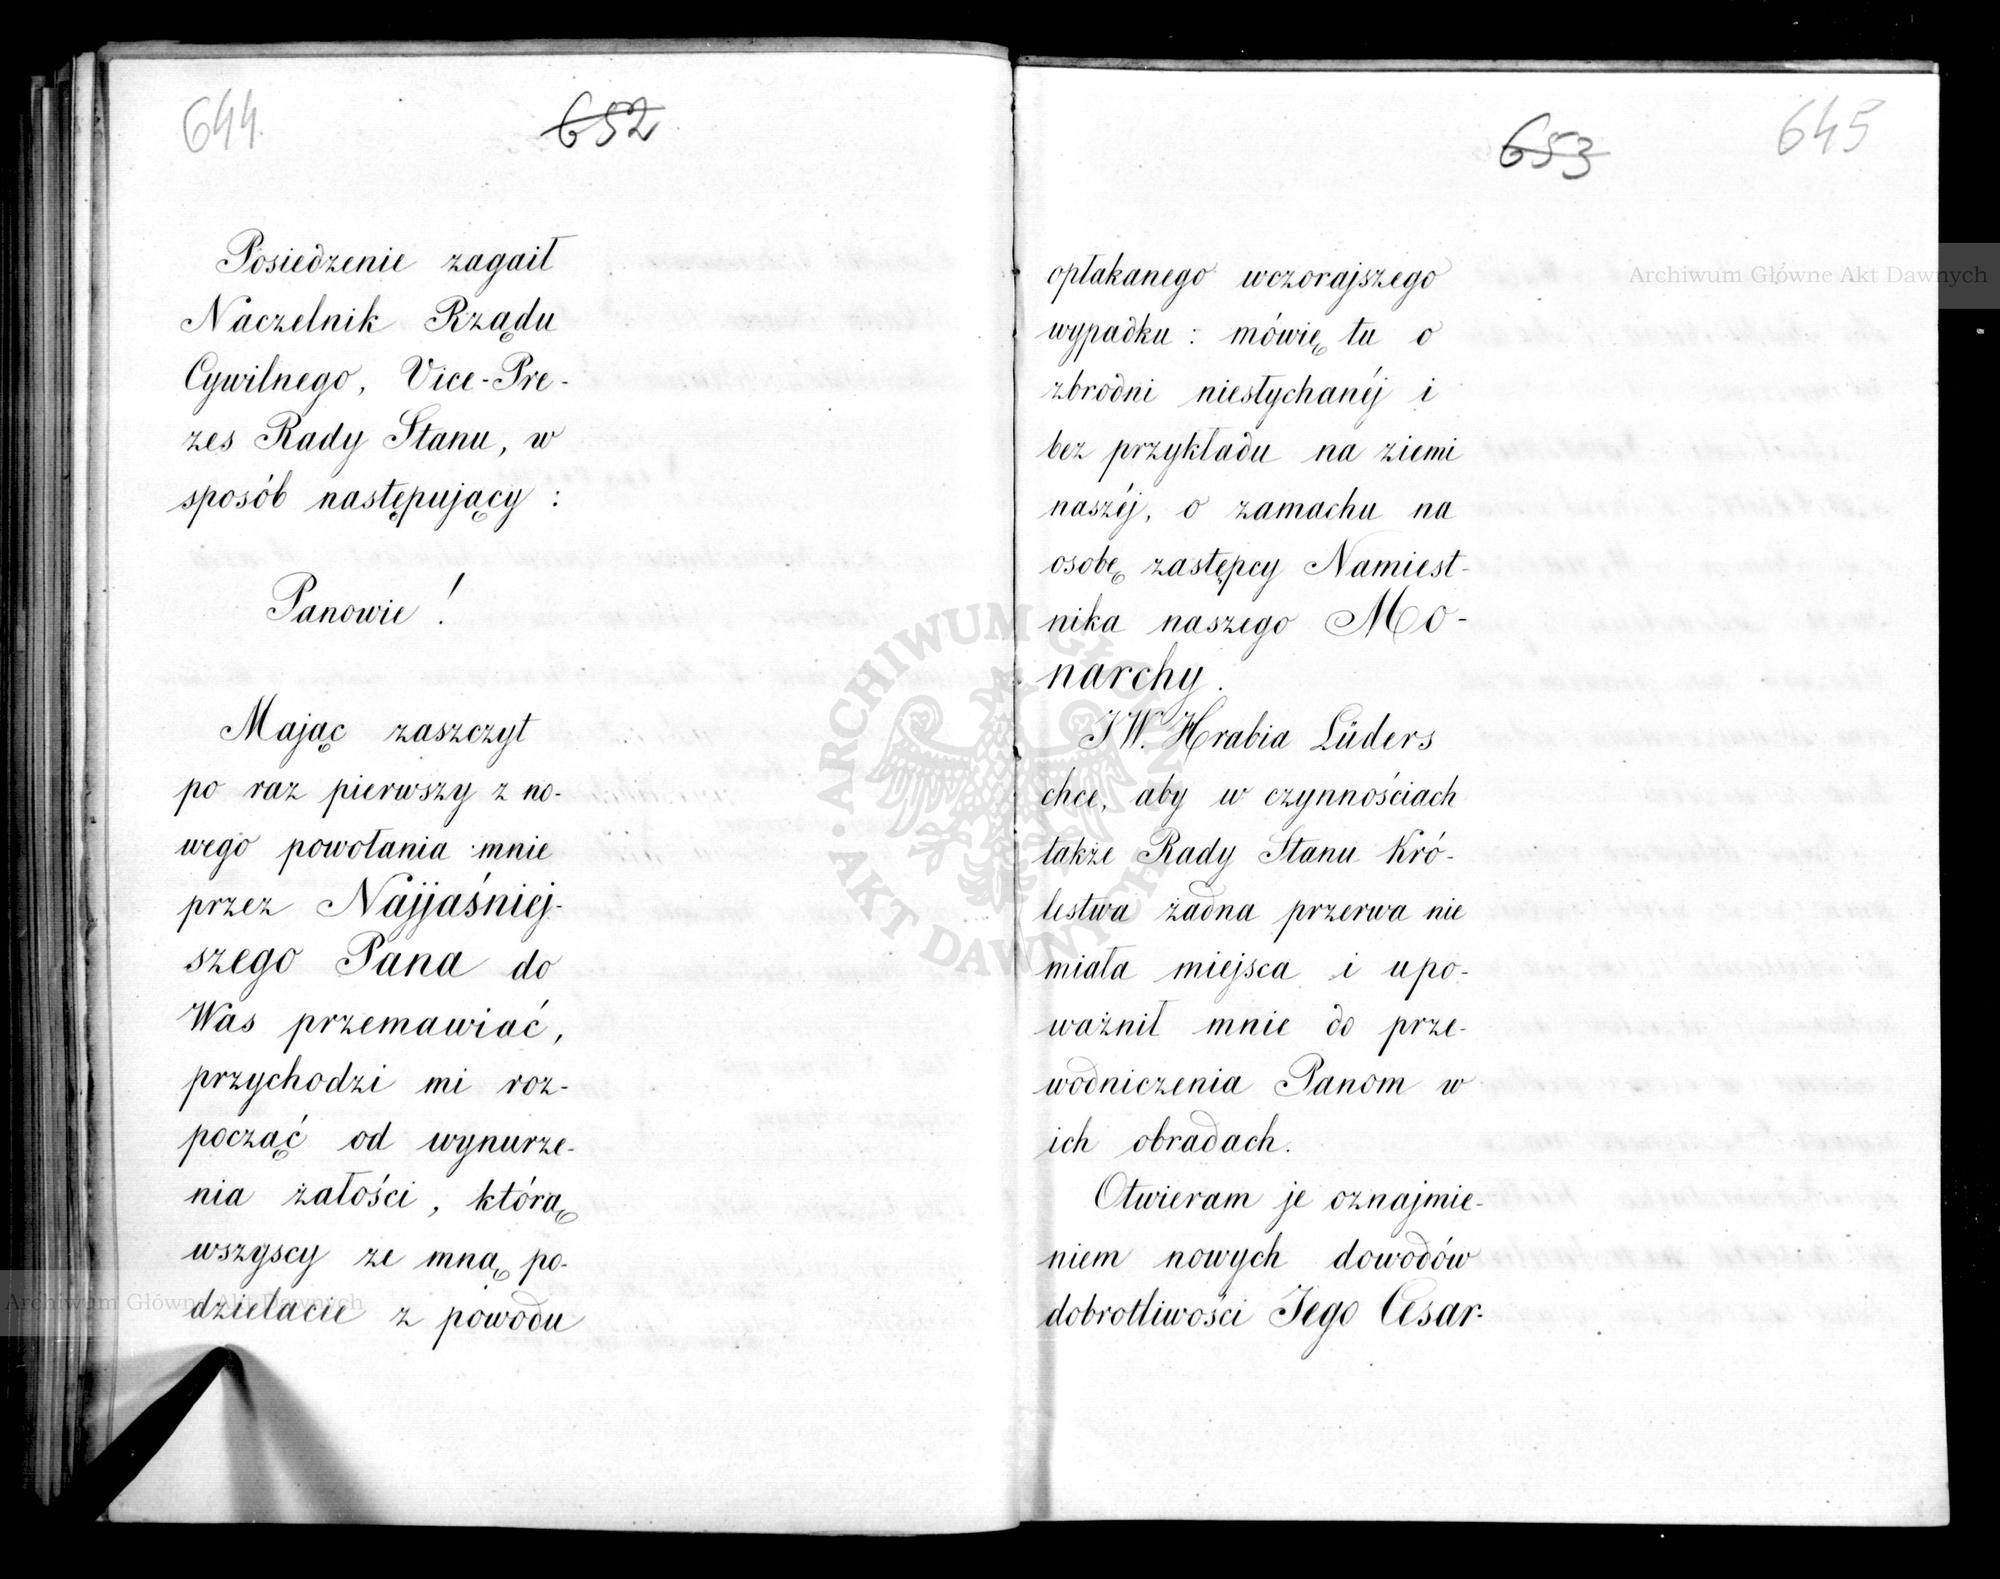 644.
652
Posiedzenie zagaił
Naczelnik Rządu
Cywilnego, Vice-Pre-
zes Rady Stanu, w
sposób następujący :
Panowie !
Mając zaszczyt
po raz pierwszy z no-
wego powołania mnie
przez Najjaśniej-
szego Pana do
Was przemawiać,
przychodzi mi roz-
począć od wynurze-
nia żałości, którą
wszyscy ze mną po-
dzielacie z powodu
653
645
opłakanego wczorajszego
wypadku : mówię tu o
zbrodni niesłychanéj i
bez przykładu na ziemi
naszéj, o zamachu na
osobę zastępcy Namiest-
nika naszego Mo-
narchy.
JW. Hrabia Lüders
chce, aby w czynnościach
także Rady Stanu Kró-
lestwa żadna przerwa nie
miała miejsca i upo-
ważnił mnie do prze-
wodniczenia Panom w
ich obradach.
Otwieram je oznajmie-
niem nowych dowodów
dobrotliwości Jego Cesar-
Archiwum Główne Akt Dawnych
ARCHIWUM GŁÓWNE · AKT DAWNYCH
Archiwum Główne Akt Dawnych